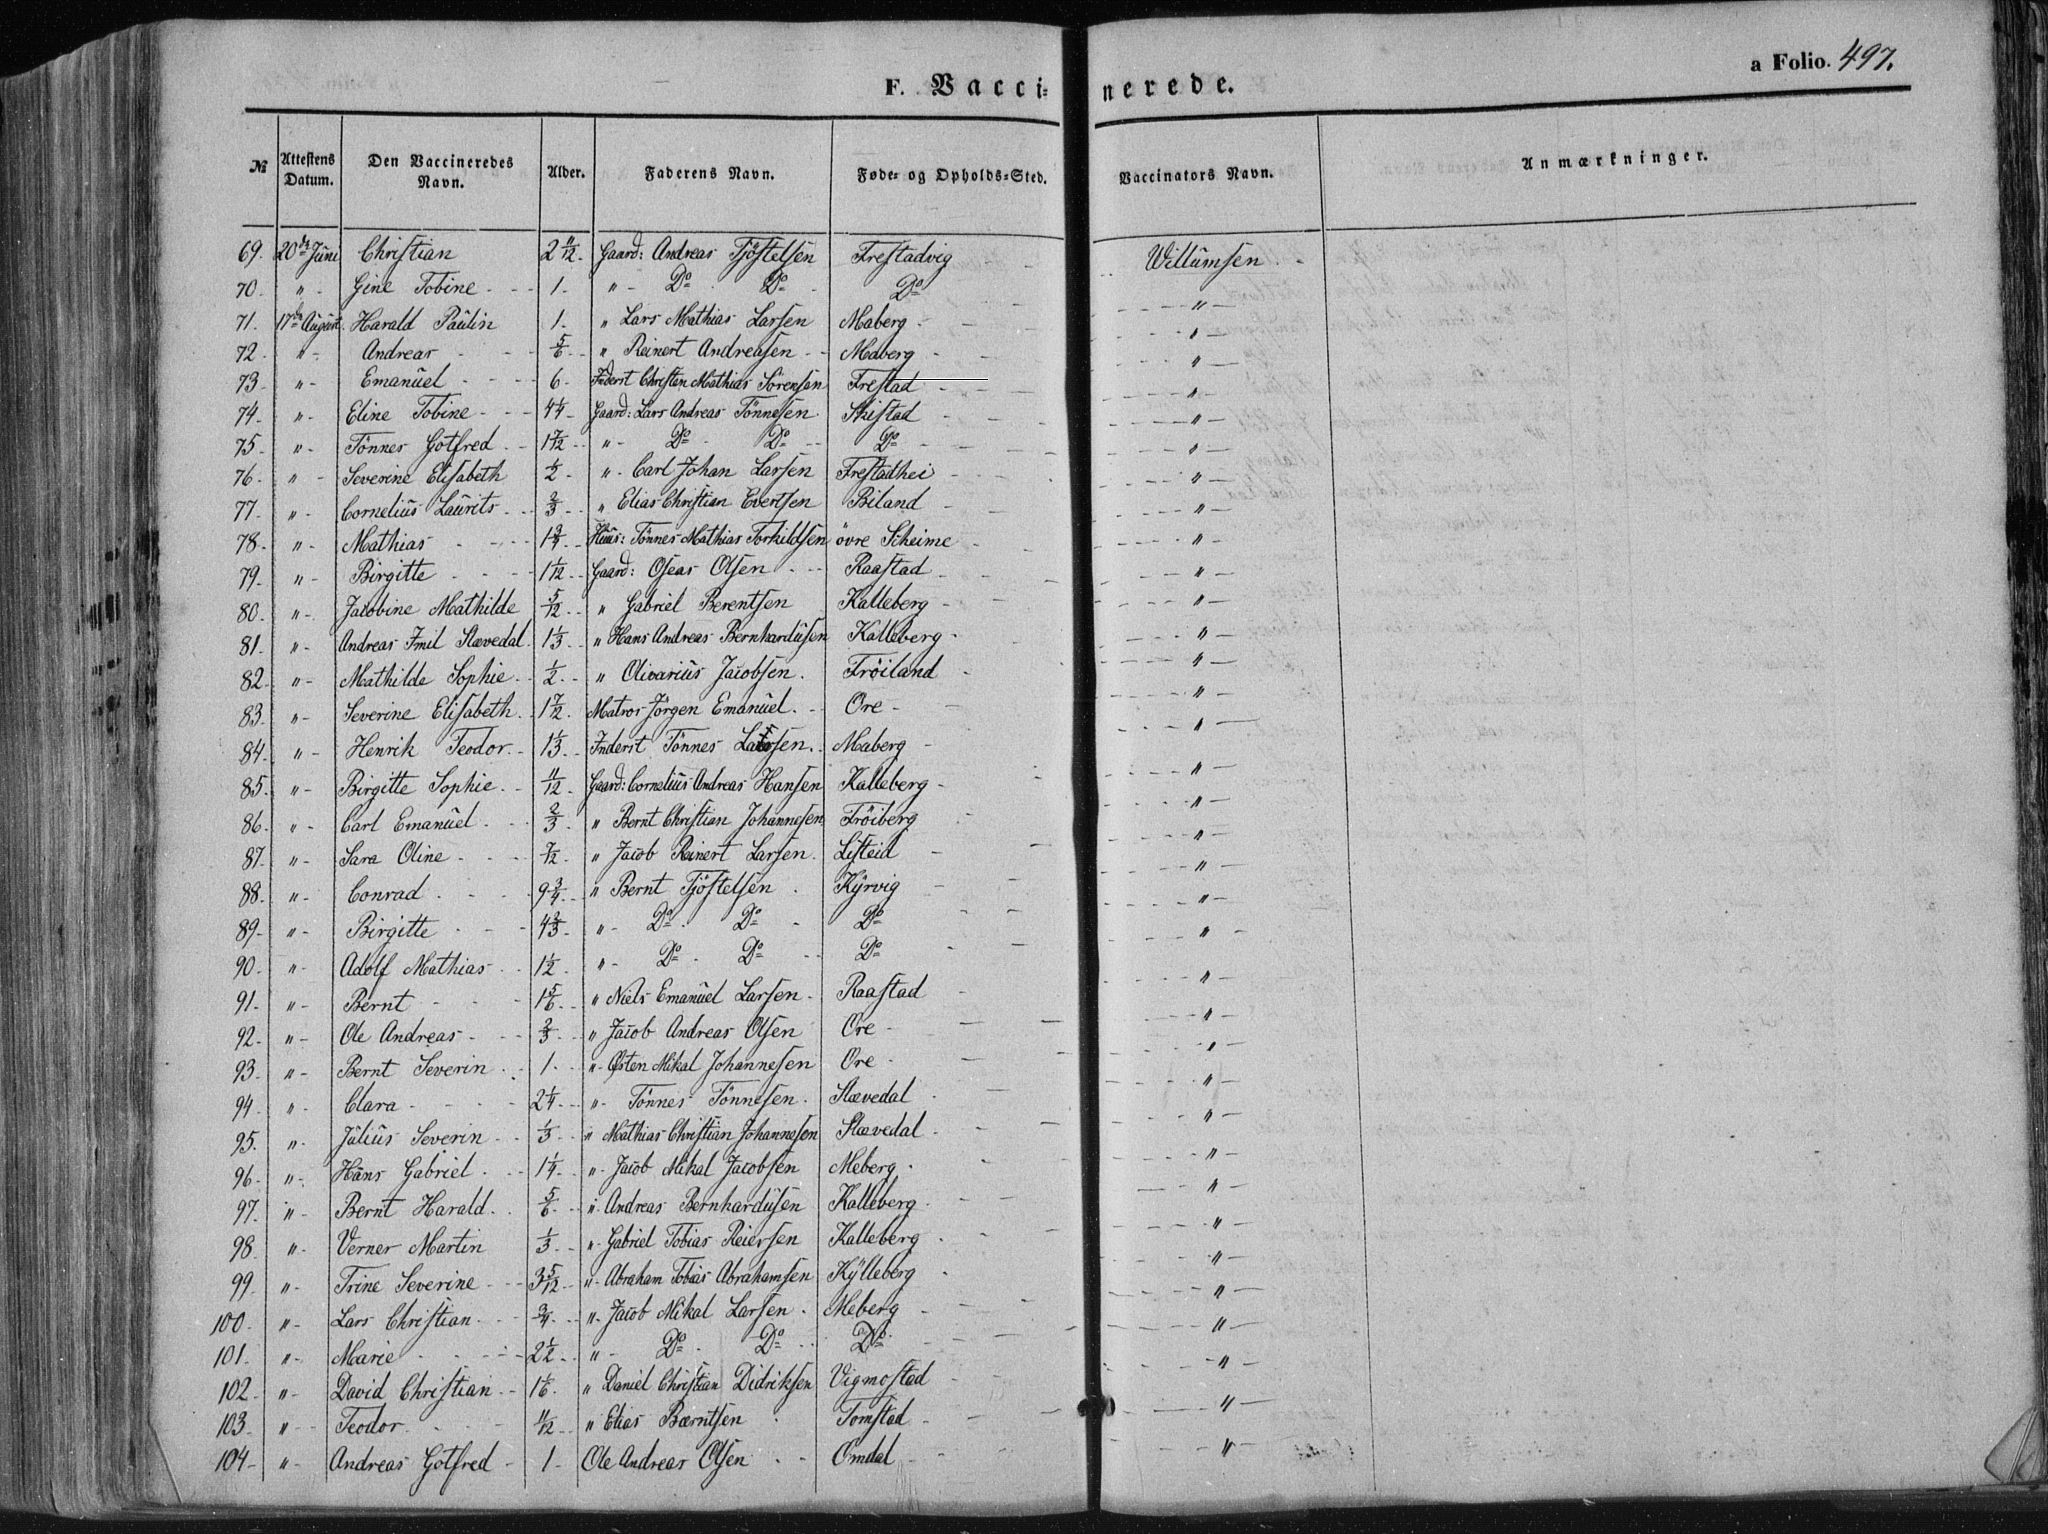 a Folio. 497.
F. Vacci= nerede.
№ Attestens Datum. Den Vaccineredes Navn. Alder. Faderens Navn. Føde- og Opholds-Sted. Vaccinators Navn. Anmærkninger.
69. 20de Juni Christian 2 11/12 Gaard: Andreas Tjöstelsen Frestadvig Willumsen
70. " Gine Tobine 1 " Do Do Do "
71. 17de August Harald Paulin 1 " Lars Mathias Larsen Maberg "
72 " Andreas 5/6 " Reinert Andreasen Maberg "
73 " Emanuel 6 Inderst Christen Mathias Sörensen Frestad "
74. " Eline Tobine 4 1/4 Gaard: Lars Andreas Tönnesen Skistad "
75. " Tönnes Gotfred 1 7/12 " Do Do Do "
76. " Severine Elisabeth 1/2 " Carl Johan Larsen Frestadhei "
77. " Cornelius Laurits 2/3 " Elias Christian Evertsen Biland "
78. " Mathias 1 3/4 Huus: Tönnes Mathias Torkildsen övre Scheime "
79. " Birgitte 1 1/12 Gaard: Oseas Olsen Raastad "
80. " Jacobine Mathilde 5/12 " Gabriel Berentsen Kalleberg "
81. " Andreas Emil Stævedal 1 1/3 " Hans Andreas Bernhardusen Kalleberg "
82 " Mathilde Sophie 1/2 " Olivarius Jacobsen Fröiland "
83. " Severine Elisabeth 1 7/12 Matros Jörgen Emanuel Ore "
84. " Henrik Teodor 1 1/3 Inderst Tönnes Larsen Maberg "
85. " Birgitte Sophie 11/12 Gaard: Cornelius Andreas Hansen Kalleberg "
86. " Carl Emanuel 2/3 " Bernt Christian Johannesen Fröiberg "
87. " Sara Oline 7/12 " Jacob Reinert Larsen Listeid "
88. " Conrad 9 3/4 " Bernt Tjöstelsen Kÿrvig "
89. " Birgitte 4 2/3 " Do Do Do "
90. " Adolf Mathias 1 1/2 " Do Do Do "
91. " Bernt 1 5/6 " Niels Emanuel Larsen Raastad "
92. " Ole Andreas 2/3 " Jacob Andreas Olsen Ore "
93. " Bernt Severin 1 " Osten Mikal Johannesen Ore "
94. " Clara 2 1/4 " Tönnes Tönnesen Stævedal "
95. " Julius Severin 1/3 " Mathias Christian Johannesen Stævedal "
96. " Hans Gabriel 1 1/4 " Jacob Mikal Jacobsen Meberg "
97. " Bernt Harald 5/6 " Andreas Bernhardusen Kalleberg "
98. " Verner Martin 1/3 " Gabriel Tobias Reiersen Kalleberg "
99. " Trine Severine 3 5/12 " Abraham Tobias Abrahamsen Kÿlleberg "
100. " Lars Christian 3/4 " Jacob Mikal Larsen Meberg "
101. " Marie 2 1/2 " Do Do Do "
102 " David Christian 1 1/6 " Daniel Christian Didriksen Vigmostad "
103. " Teodor 11/12 " Elias Bærntsen Tomstad "
104 " Andreas Gotfred 1 Ole Andreas Olsen Omdal "